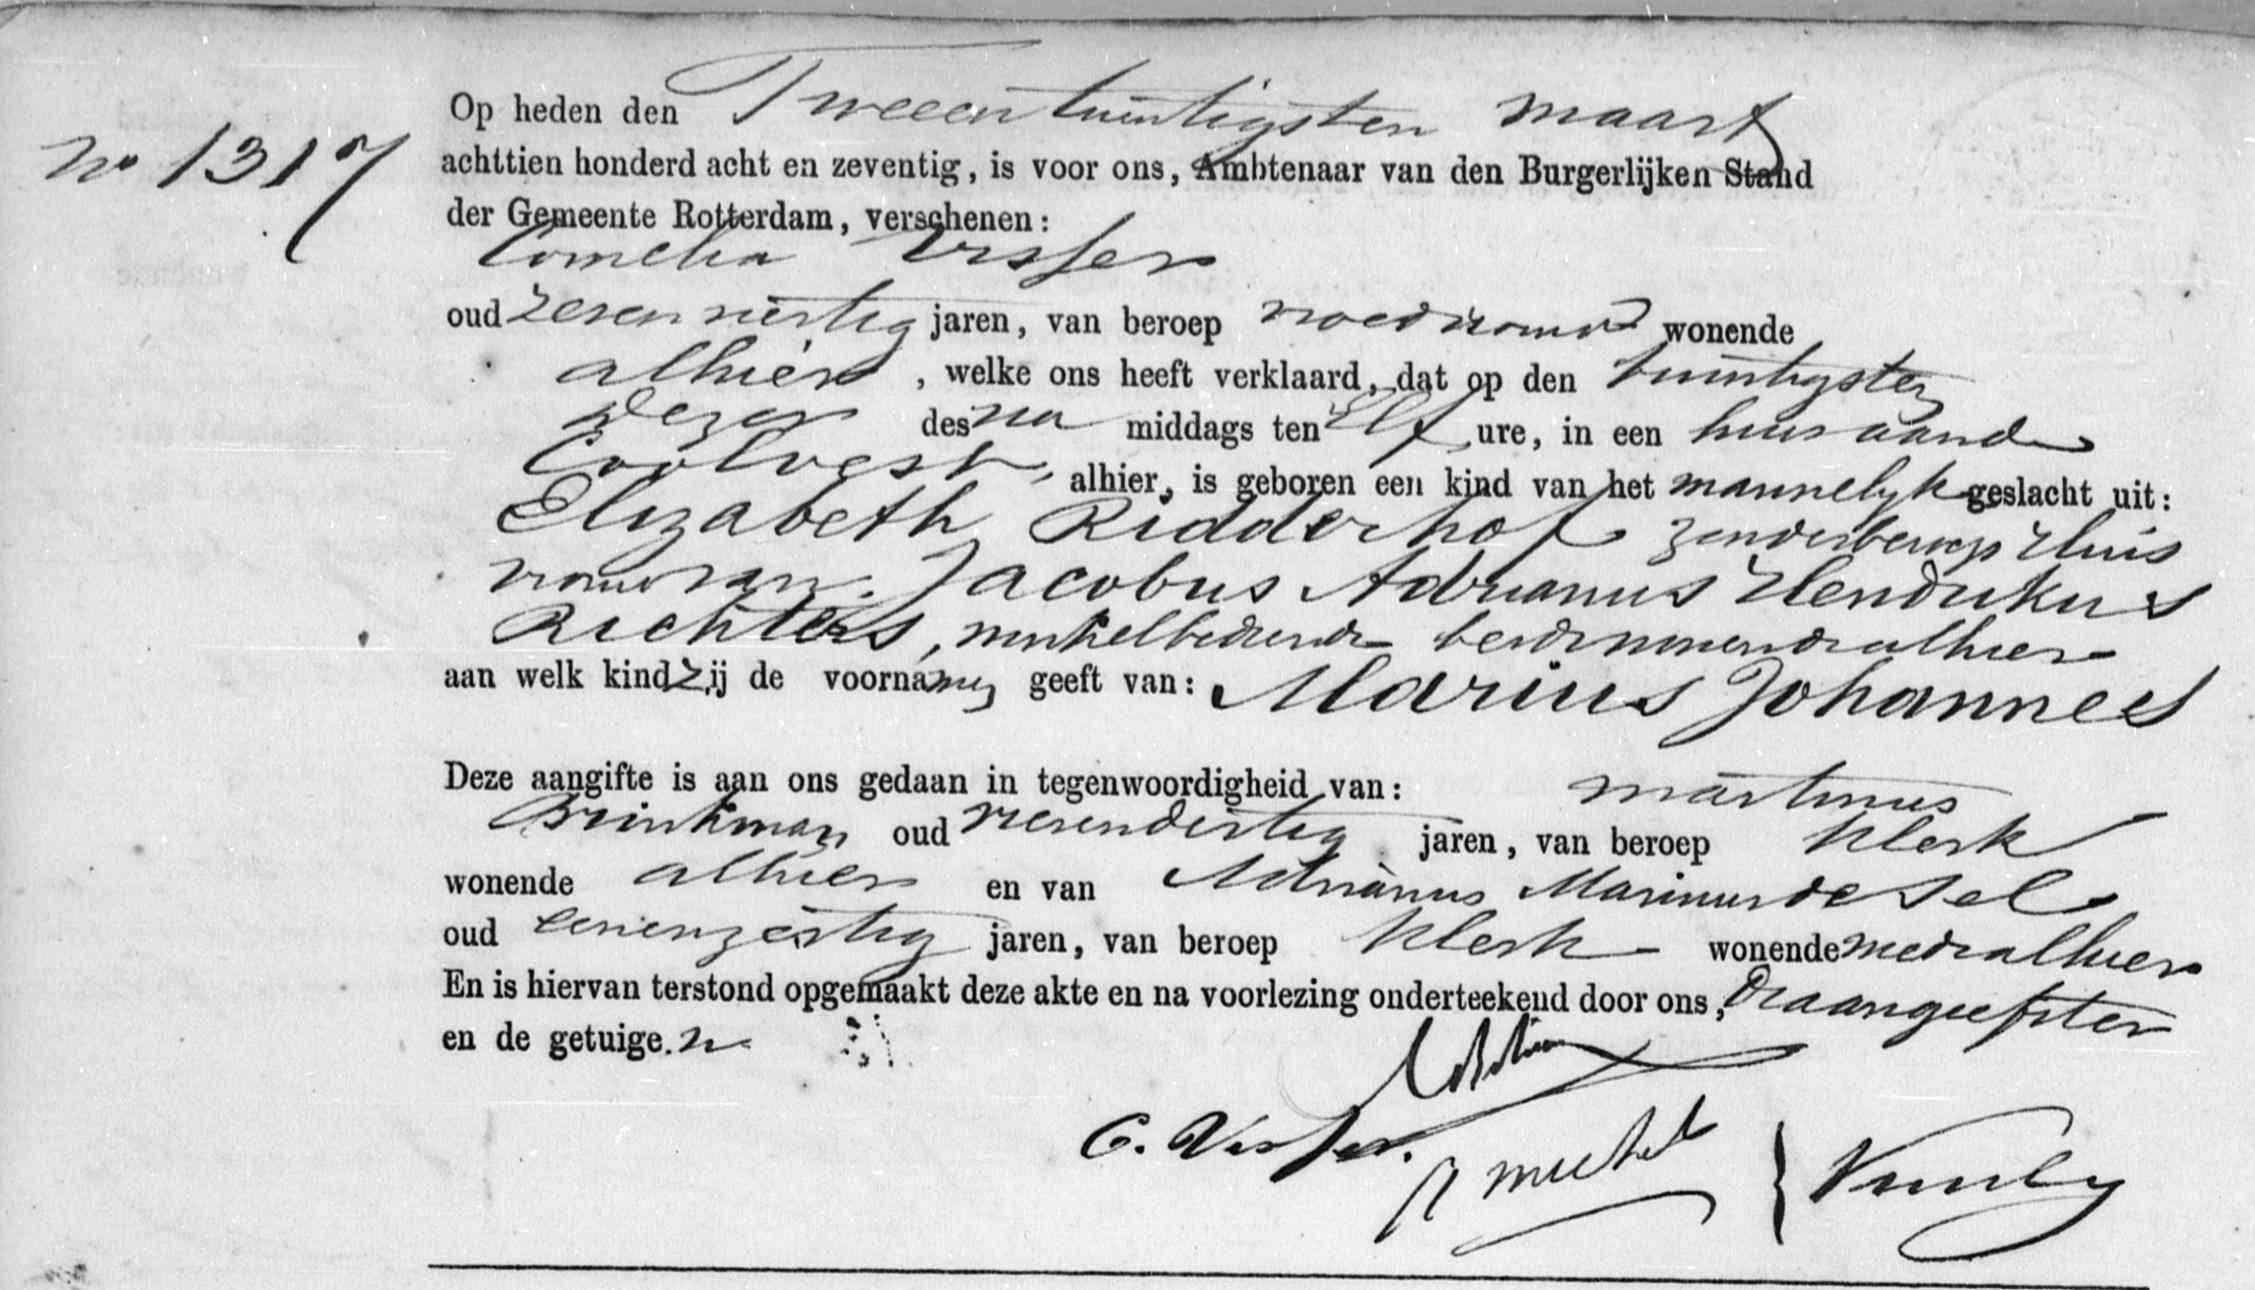 No 1317
Op heden den Tweeentwintigsten maart
achttien honderd acht en zeventig, is voor ons, Ambtenaar van den Burgerlijken Stand
der Gemeente Rotterdam, verschenen:
Cornelia Visser
oud zevenveertig jaren, van beroep vroedvrouw wonende
alhier, welke ons heeft verklaard, dat op den twintigsten
dezer des na middags ten Elf ure, in een huis aande
Coolvest, alhier, is geboren een kind van het mannelyk geslacht uit:
Elizabeth Ridderhof zonderberoep Huis
vrouw van Jacobus Adrianus Hendrikus
Richters, winkelbediende beidewonendealhier
aan welk kind zij de voornamen geeft van: Marius Johannes
Deze aangifte is aan ons gedaan in tegenwoordigheid van: Martinus
Brinkman oud vierendertig jaren, van beroep klerk
wonende alhier en van Adrianus Marinus de Sel
oud eenenzestig jaren, van beroep klerk wonende medealhier
En is hiervan terstond opgemaakt deze akte en na voorlezing onderteekend door ons, de aangeefster
en de getuige.n
C. Visser.